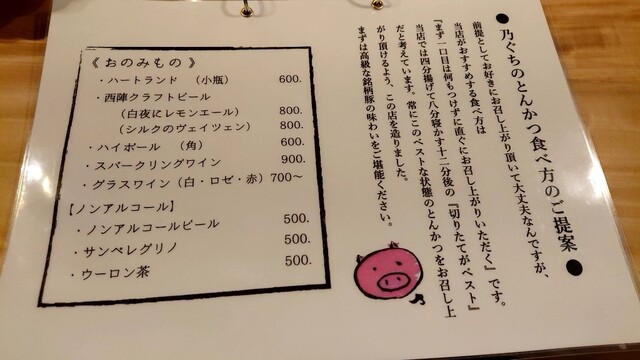 ●乃ぐちのとんかつ食べ方のご提案●
前提としてお好きにお召し上がり頂いて大丈夫なんですが、
当店がおすすめする食べ方は
『まず一口目は何もつけずに直ぐにお召し上がりいただく』です。
当店では四分揚げて八分寝かす十二分後の『切りたてがベスト』
だと考えています。常にこのベストな状態のとんかつをお召し上
がり頂けるよう、この店を造りました。
まずは高級な銘柄豚の味わいをご堪能ください。
《 おのみもの 》
・ハートランド （小瓶） 600.
・西陣クラフトビール
（白夜にレモンエール） 800.
（シルクのヴェイツェン） 800.
・ハイボール （角） 600.
・スパークリングワイン 900.
・グラスワイン（白・ロゼ・赤）700～
【ノンアルコール】
・ノンアルコールビール 500.
・サンペレグリノ 500.
・ウーロン茶 500.